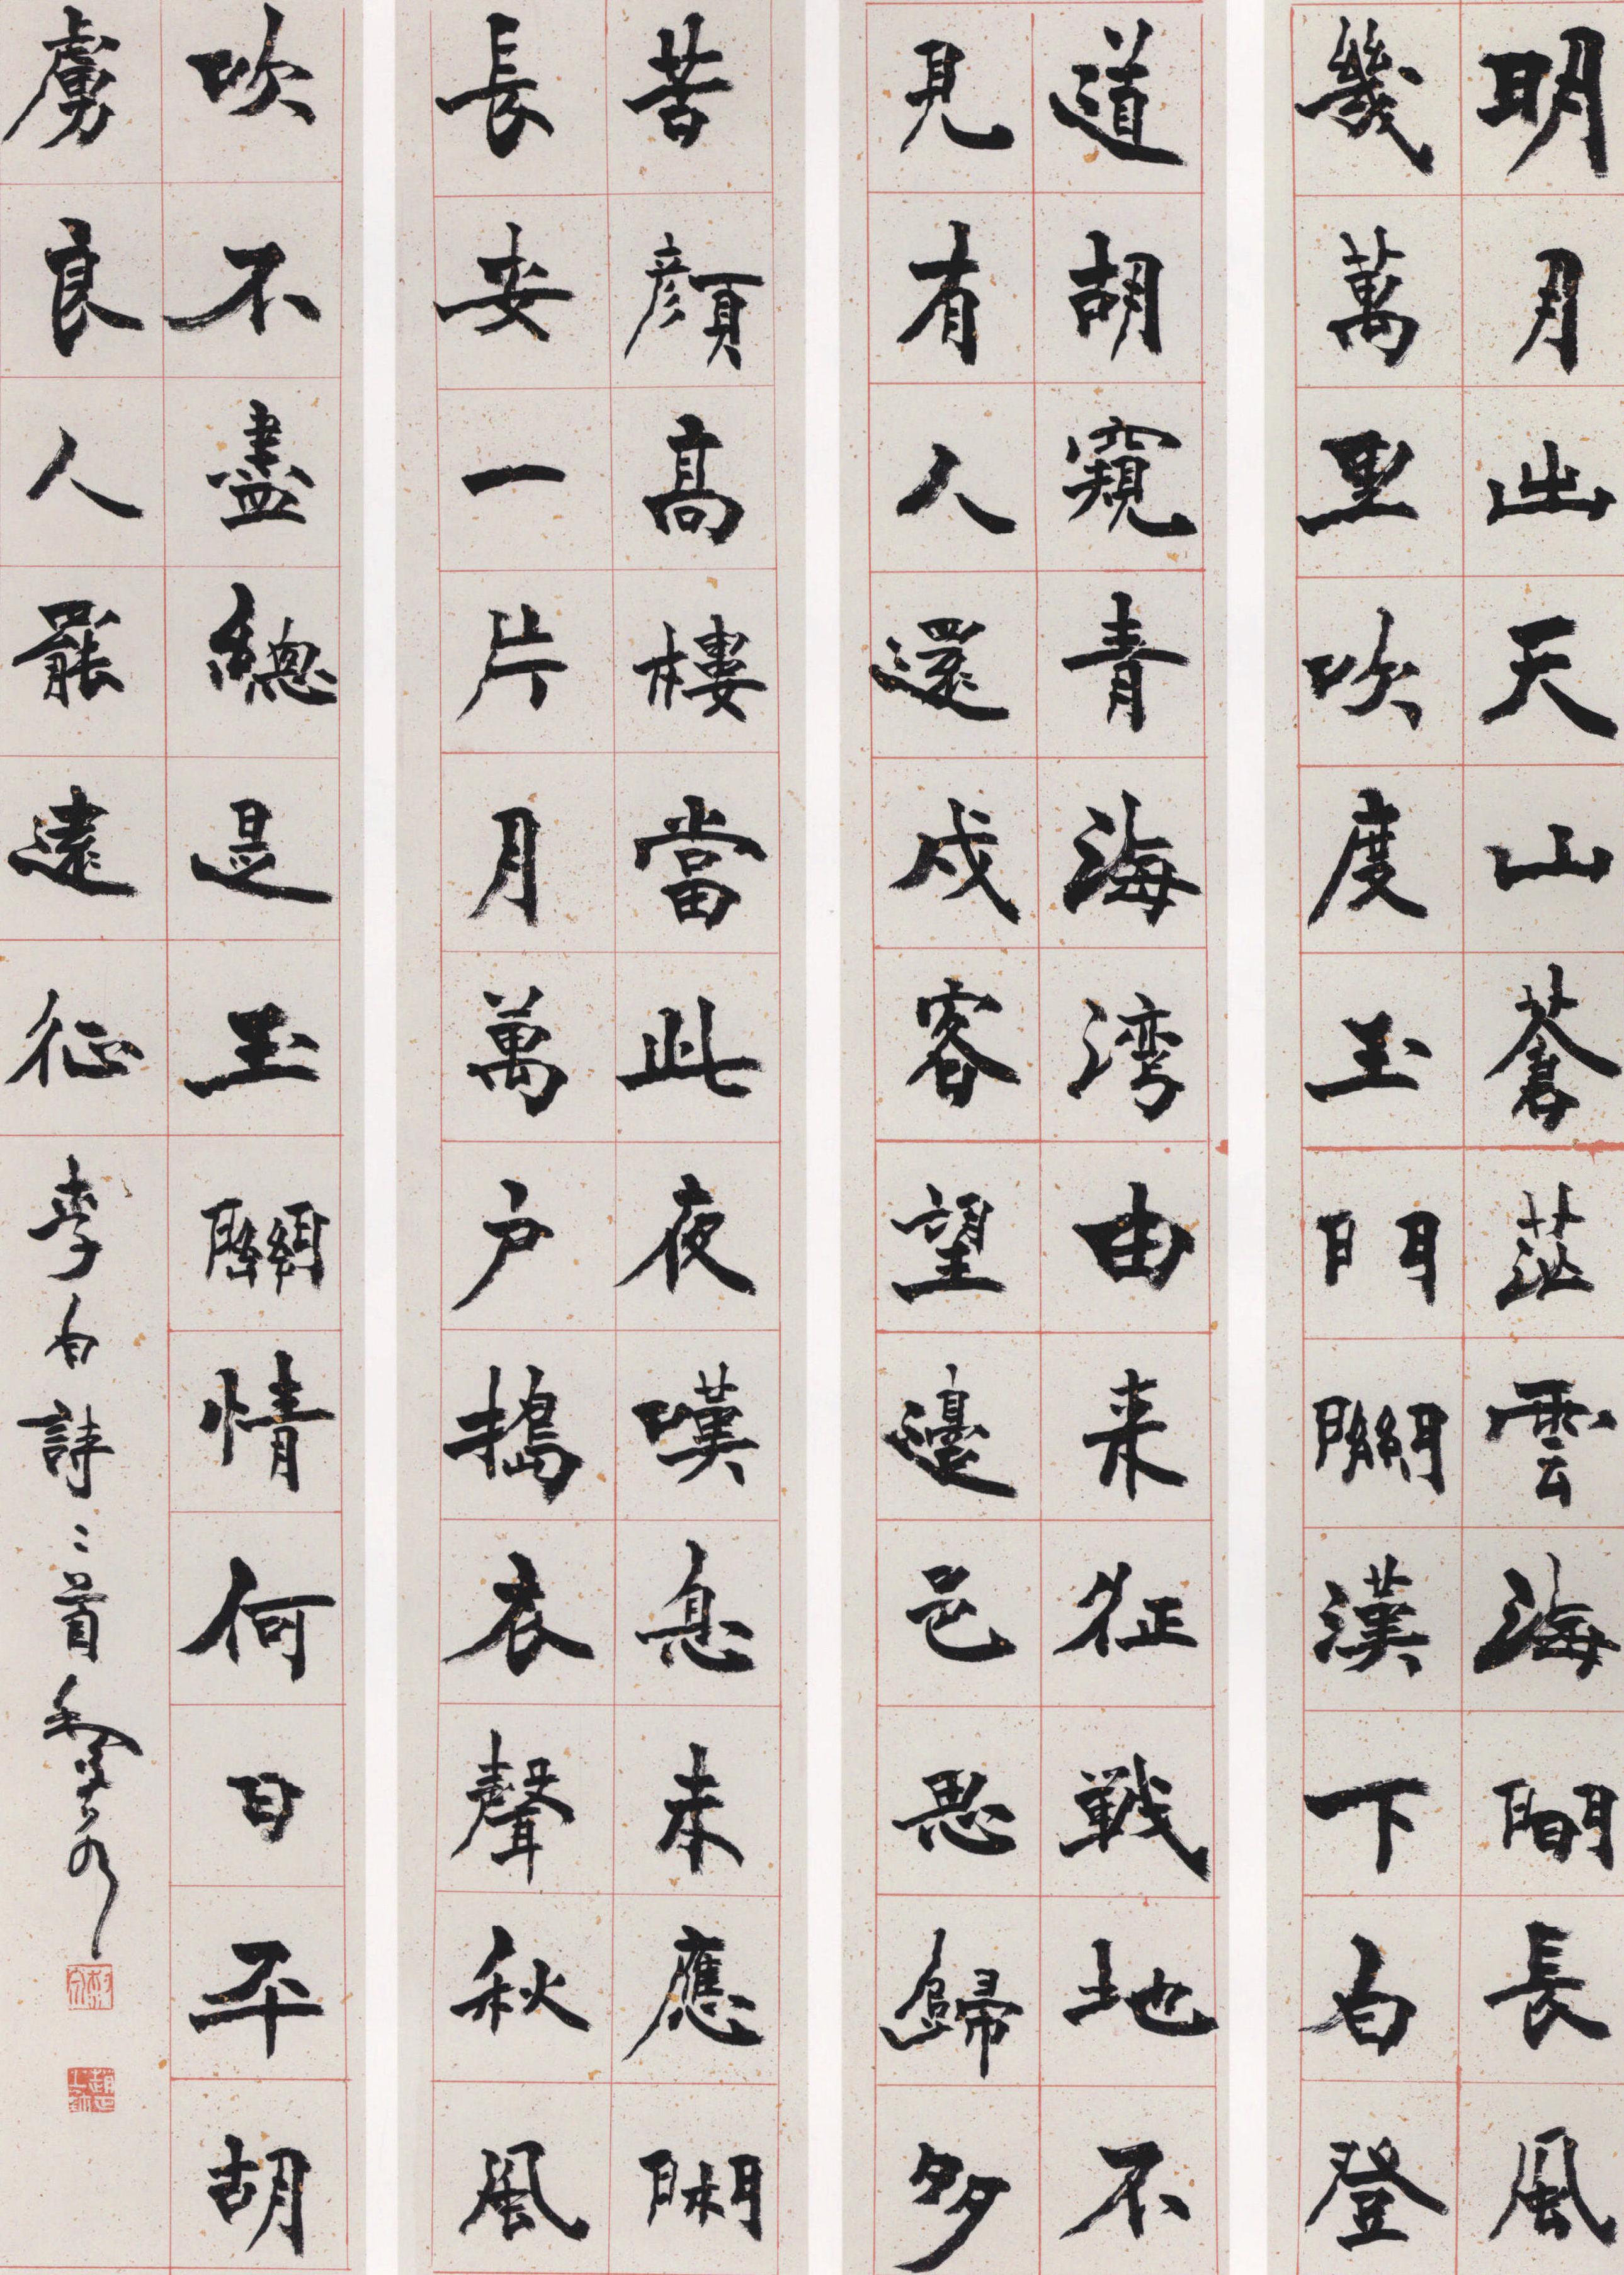 明月出天山蒼茫雲海間長風
幾萬里吹度玉門關漢下白登
道胡窺青海湾由来征戦地不
見有人還戍客望邊邑思歸多
苦顏高樓當此夜嘆息未應閑
長安一片月萬户搗衣聲秋風
吹不盡總是玉關情何日平胡
虜良人罷遠征李白詩二首